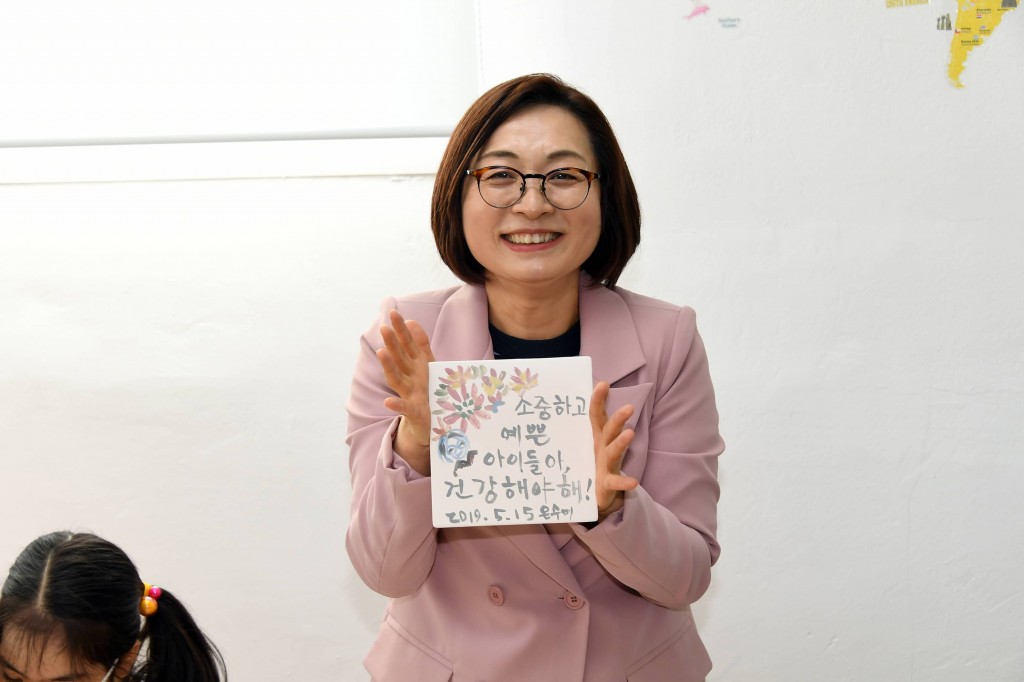 소중하고
예쁜
아이들아,
건강해야해!
2019.5.15 은수미